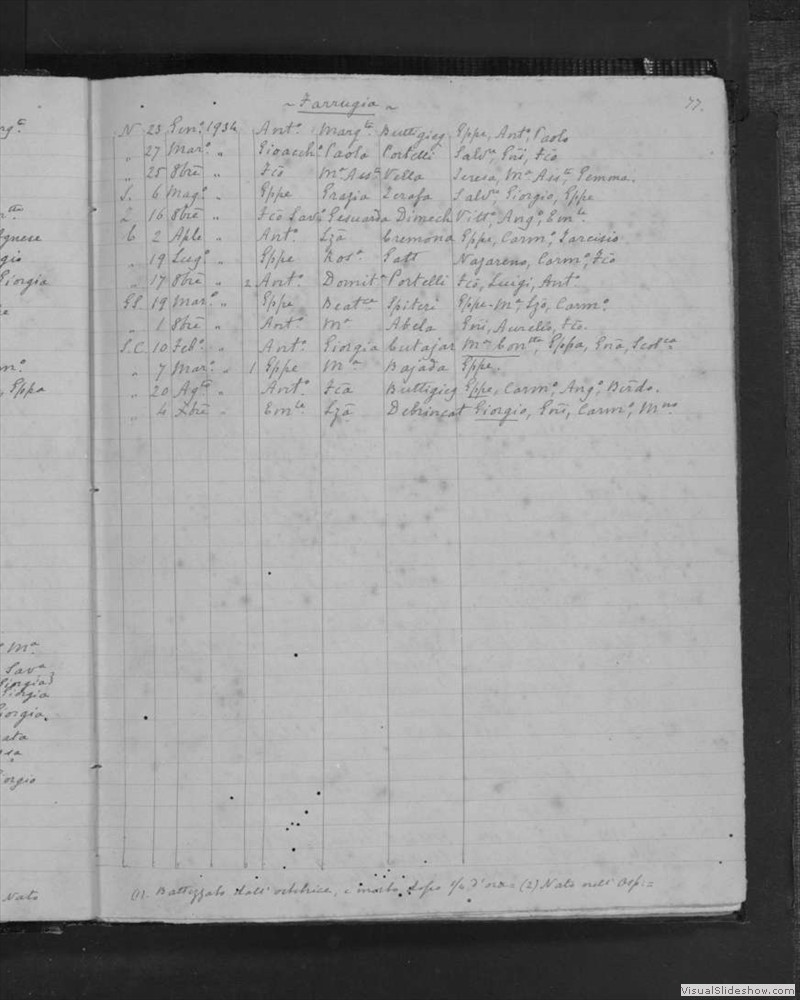 ~ Farrugia ~
77.
N 23 Genº. 1934 Antº. Margta Buttigieg Gppe, Antº. Paolo
„ 27 Marº. „ Gioacchº. Paola Portelli Salvre, Gni, Fco
„ 25 8bre „ Fco Mª. Assta Vella Teresa, Mª Assta, Gemma.
S. 6 Magº. „ Gppe Grazia Zerafa Salvre, Giorgio, Gppe
Z 16 8bre „ Fco Savº. Gesuarda Dimech Vittº, Angº, Emle
C 2 Aple „ Antº. Lza Cremona Gppe, Carmº, Tarcisio
„ 19 Lugº. „ Gppe Rosª. Gatt Nazareno, Carmº, Fco
„ 17 8bre „ 2 Antº. Domitª Portelli Fco, Luigi, Antº.
GS. 19 Marº. „ Gppe Beatce Spiteri Gppe-Mª, Lzo, Carmº.
„ 1 8bre „ Antº. Mª Abela Gni, Aurelio, Fco.
S.C. 10 Febº. „ Antº. Giorgia Cutajar Mª Contta, Gppa, Gna, Scolca
„ 7 Marº. „ 1 Gppe Mª Bajada Gppe.
„ 20 Agto „ Antº. Fca Buttigieg Gppe, Carmº, Angº, Birdo.
„ 4 Xbre „ Emle Lza Debrincat Giorgio, Gni, Carmº, Mno
(1). Battezzato dall' ostetrice, e morto dopo ¼ d'ora= (2) Nato nell' Osp:=
Agnese
Giorgia
, Gppa
Mª.
Savª
Giorgia
Giorgia
Giorgia.
Giorgio
Nato
VisualSlideshow.com